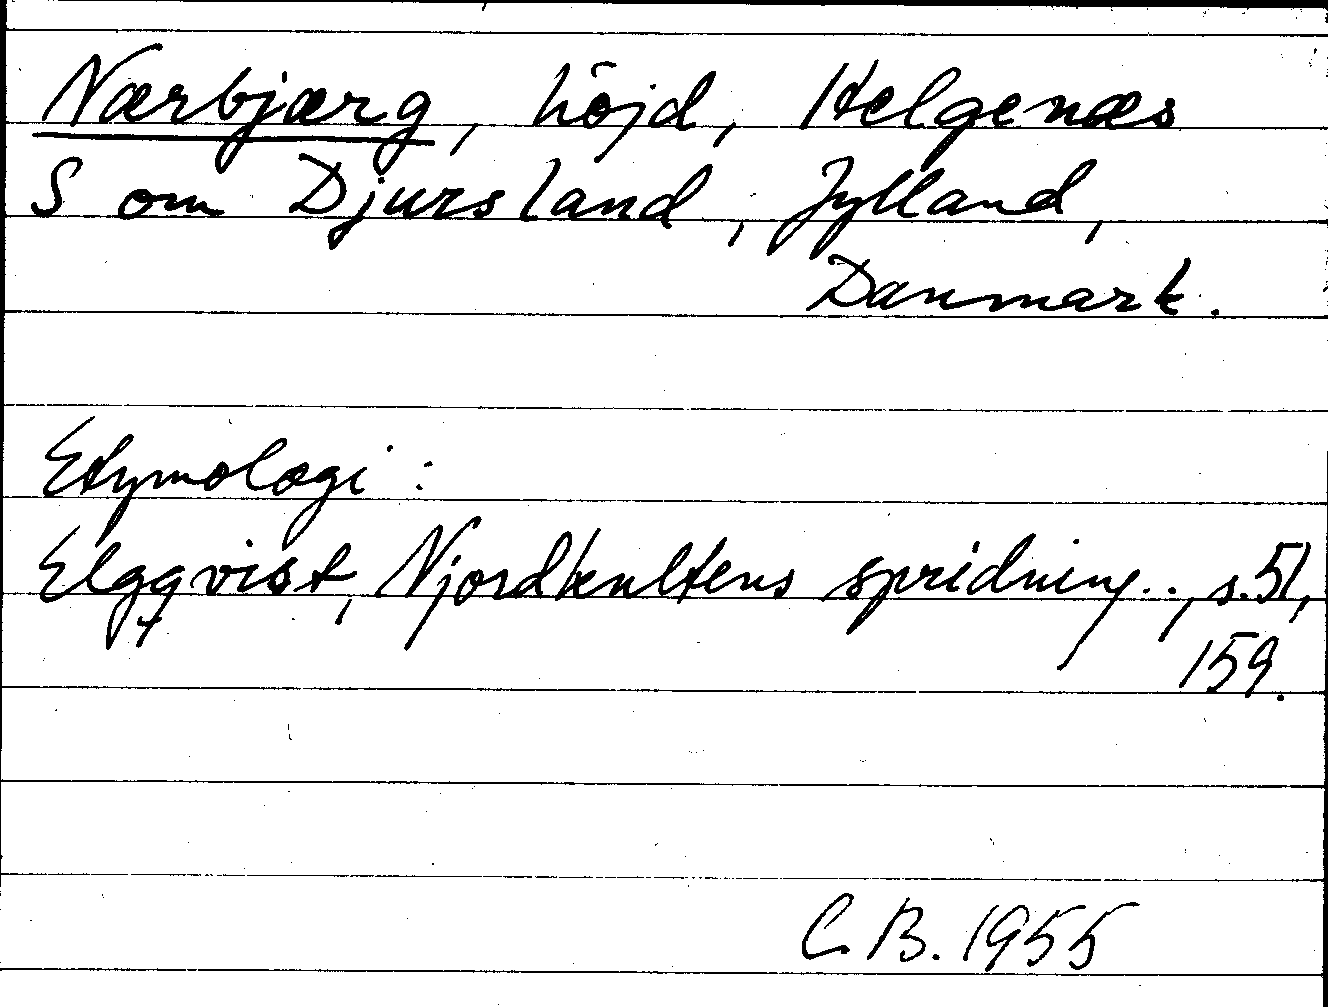 Nærbjærg, höjd, Helgenæs
S om Djursland, Jylland,
Danmark.
Etymologi:
Elgqvist, Njordkultens spridning.., s. 51,
159.
C. B. 1955